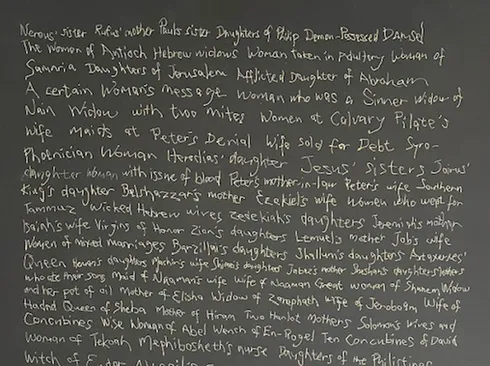 Nereus' sister Rufus' mother Paul's sister Daughters of Philip Demon-Possessed Damsel
The Woman of Antioch Hebrew widows Woman taken in Adultery Woman of
Samaria Daughters of Jerusalem Afflicted Daughter of Abraham
A certain Woman's message Woman who was a Sinner Widow of
Nain Widow with two mites Women at Calvary Pilate's
wife Maids at Peter's Denial Wife sold for Debt Syro-
Phoenician Woman Herodias' daughter Jesus' sisters Jairus'
daughter Woman with issue of blood Peter's mother-in-law Peter's wife Southern
King's daughter Belshazzar's mother Ezekiel's wife Women who wept for
Tammuz Wicked Hebrew wives Zedekiah's daughters Jeremiah's mother
Isaiah's wife Virgins of Honor Zion's daughters Lemuel's mother Job's wife
Women of mixed marriages Barzillai's daughters Shallum's daughters Artaxerxes'
Queen Heman's daughters Machir's wife Shimei's daughters Jabez's mother Sheshan's daughters Mothers
who ate their sons Maid of Naaman's wife Wife of Naaman Great woman of Shunem Widow
and her pot of oil Mother of Elisha Widow of Zarephath Wife of Jeroboam Wife of
Hadad Queen of Sheba Mother of Hiram Two Harlot Mothers Solomon's Wives and
Concubines Wise Woman of Abel Wench of En-Rogel Ten Concubines of David
Woman of Tekoah Mephibosheth's nurse Daughters of the Philistines
Witch of Endor